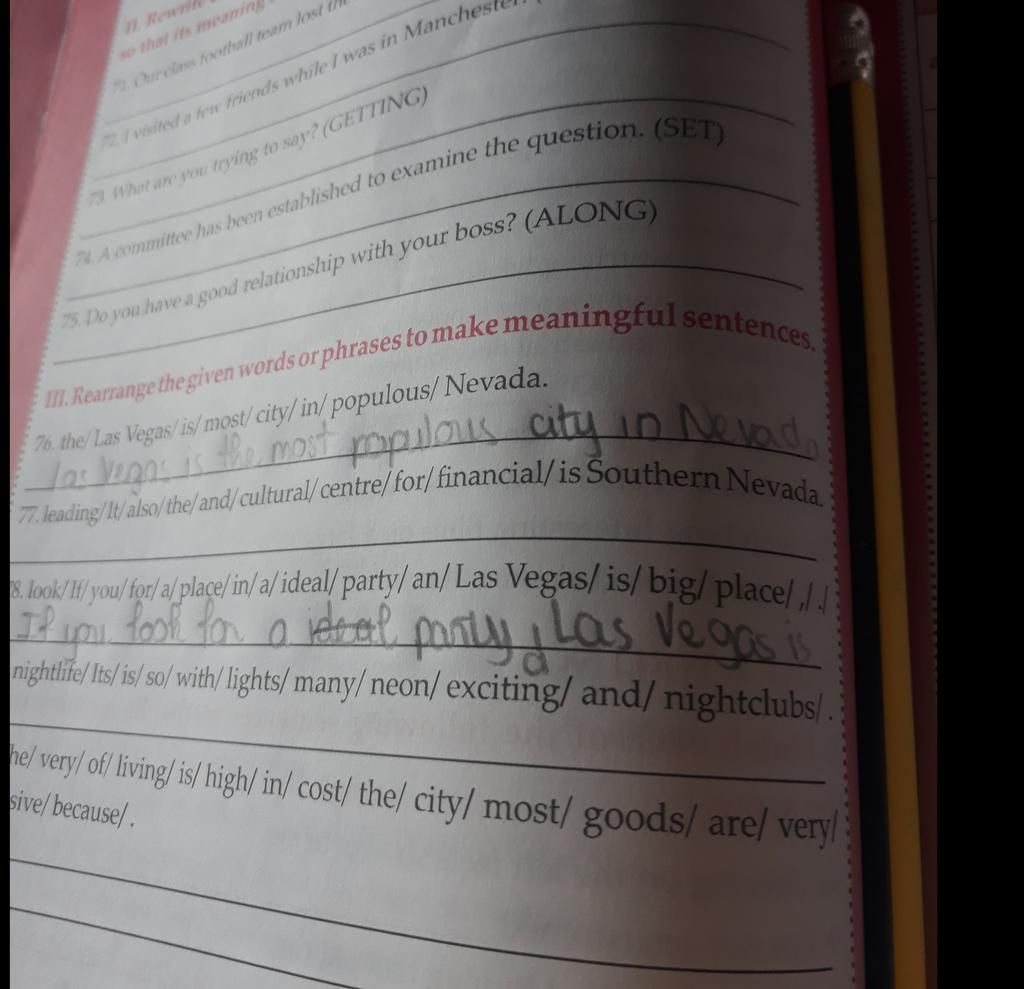 II. Rewrite
so that its meaning
71. Our class football team lost the
72. I visited a few friends while I was in Manchester. (
73. What are you trying to say? (GETTING)
74. A committee has been established to examine the question. (SET)
75. Do you have a good relationship with your boss? (ALONG)
III. Rearrange the given words or phrases to make meaningful sentences.
76. the/ Las Vegas/ is/ most/ city/ in/ populous/ Nevada.
las vegas is the most populous city in Nevada
77. leading/ It/ also/ the/ and/ cultural/ centre/ for/ financial/ is Southern Nevada.
8. look/ If/ you/ for/ a/ place/ in/ a/ ideal/ party/ an/ Las Vegas/ is/ big/ place/ ,/ ./
If you look for a ideal party, Las Vegas is
a
nightlife/ Its/ is/ so/ with/ lights/ many/ neon/ exciting/ and/ nightclubs/ .
he/ very/ of/ living/ is/ high/ in/ cost/ the/ city/ most/ goods/ are/ very/
sive/ because/ .